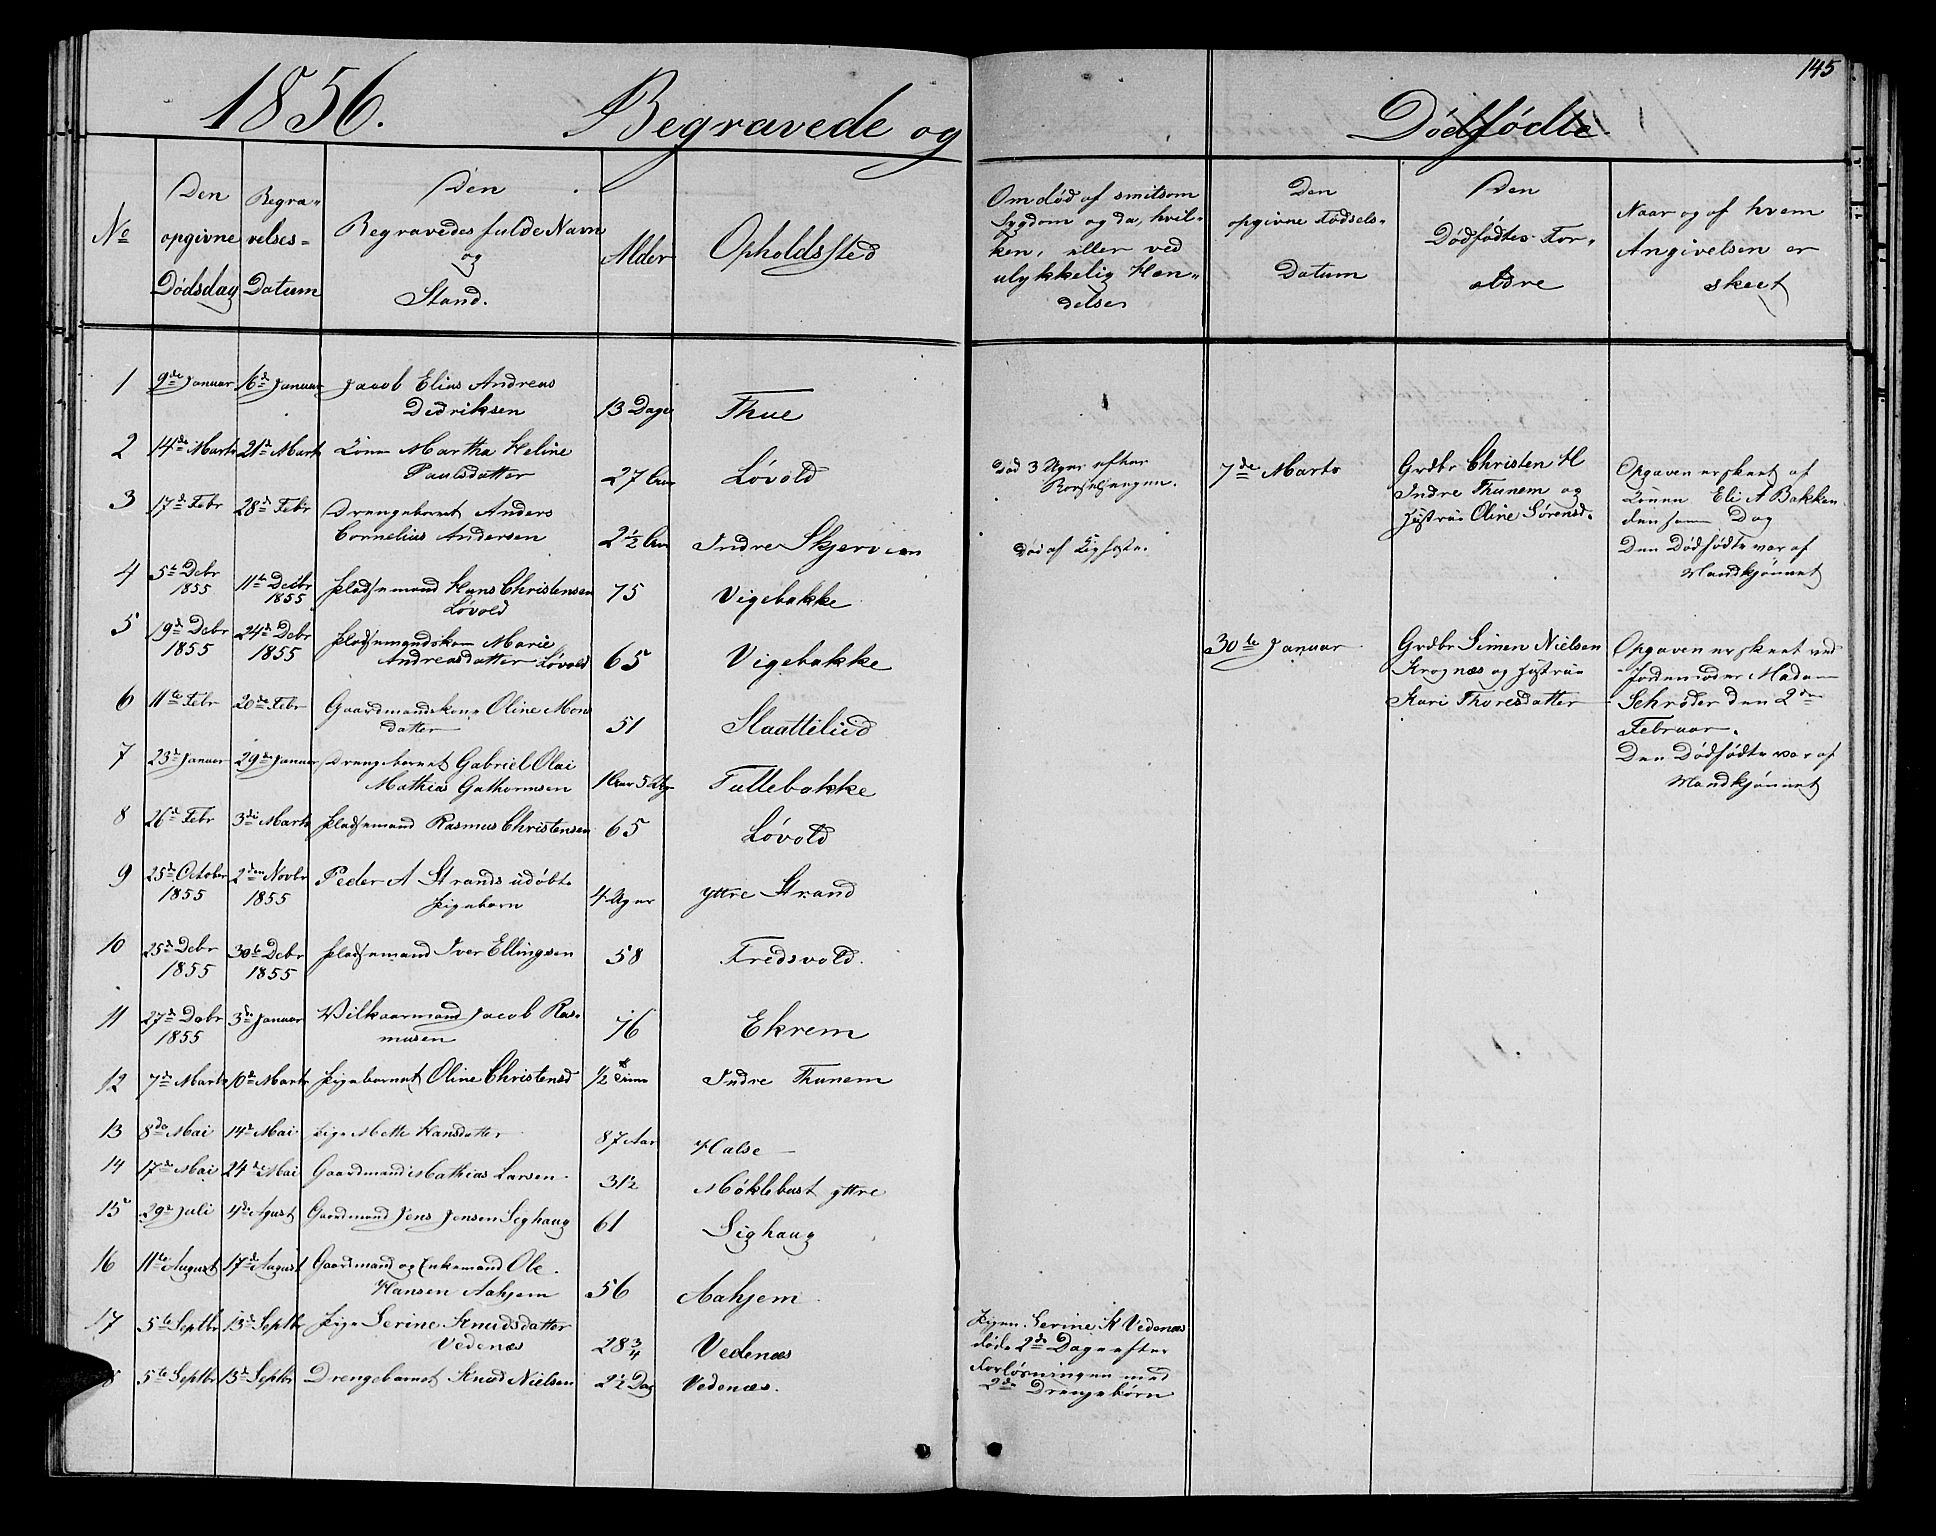 145
1856. Begravede og Dødfødte
No
Den opgivne Dødsdag
Begra-velses-Datum
Den Begravedes fulde Navn og Stand.
Alder
Opholdssted
Om død af smitsom Sygdom og da, hvil-ken, eller ved ulykkelig Hæn-delse
Den opgivne Fødsels-Datum
Den Dødfødtes For-ældre
Naar og af hvem Angivelsen er skeet
1 9de Januar 16de Januar Jacob Elias Andreas
Didriksen 13 Dage Thue
2 14de Marts 21de Marts Konen Martha Heline
Paulsdatter 27 Aar Løvold
Død 3 Uger efter
Barselsengen.
3 17de Febr 28de Febr Drengebarnet Anders
Cornelius Andersen 2½ Aar Indre Skjerven
Død af
4 5te Debr 1855 11te Decbr 1855 Pladsemand Hans Christensen
Løvold 75 Vigebakke
5 19de Debr 1855 24de Debr 1855 Pladsemandskone Marie
Andreasdatter Løvold 65 Vigebakke
6 11te Febr 20de Febr Gaardmandskone Oline Mons
datter 51 Slaattelied
7 23de Januar 29de Januar Drengebarnet Gabriel Olai
Mathias Gathormsen 1 Aar 5 Uger Tuttebakke
8 26de Febr 3die Marts Pladsemand Rasmus Christensen 65 Løvold
9 25de Octobr 1855 2den Novbr 1855 Peder A Strands udøbte
Pigebarn 4 Uger yttre Strand
10 25de Debr 1855 30te Debr 1855 Pladsemand Iver Ellingsen 58 Fredsvold.
11 27de Debr 1855 3die Januar Vilkaarmand Jacob Ras-
musen 76 Ekrem
12 7de Marts 10de Marts Pigebarnet Oline Christensd ½ Time Indre Thunem
13 8de Mai 14de Mai Pige Mette Hansdatter 87 Aar Halse
14 17de Mai 24de Mai Gaardmand Mathias Larsen 31½ Møklebust yttre
15 29de Juli 4de Agust Gaardmand Jens Jensen Sighaug 61 Sighaug
16 11te August 17de August Gaardmand og Enkemand Ole
Hansen Aahjem 56 Aahjem
17 5te Septbr 13de Septbr Pige Serine Knudsdatter
Vedenæs 28 3/4 Vedenæs
Pigen Serine K Vedenæs
døde 2de Dage efter
Forløsningen med
2de Drengebørn
8 5te Septbr 13de Septbr Drengebarnet Knud Nielsen 2½ Dag Vedenæs.
7de Marts
Grdbr Christen H
Indre Thunem og
Hustrue Oline Sørensd.
Opgaven er skeet af
Konen Eli A Bakken
den samme Dag
Den Dødfødte var af
Mandkjønnet
30te Januar
Grdbr Simen Nielsen
Krognæs og Hustrue
Kari Thoresdatter
Opgaven er skeet ved
Jordemoder Madam
Schrøder den 2den
Februar.
Den Dødfødte var af
Mandkjønnet